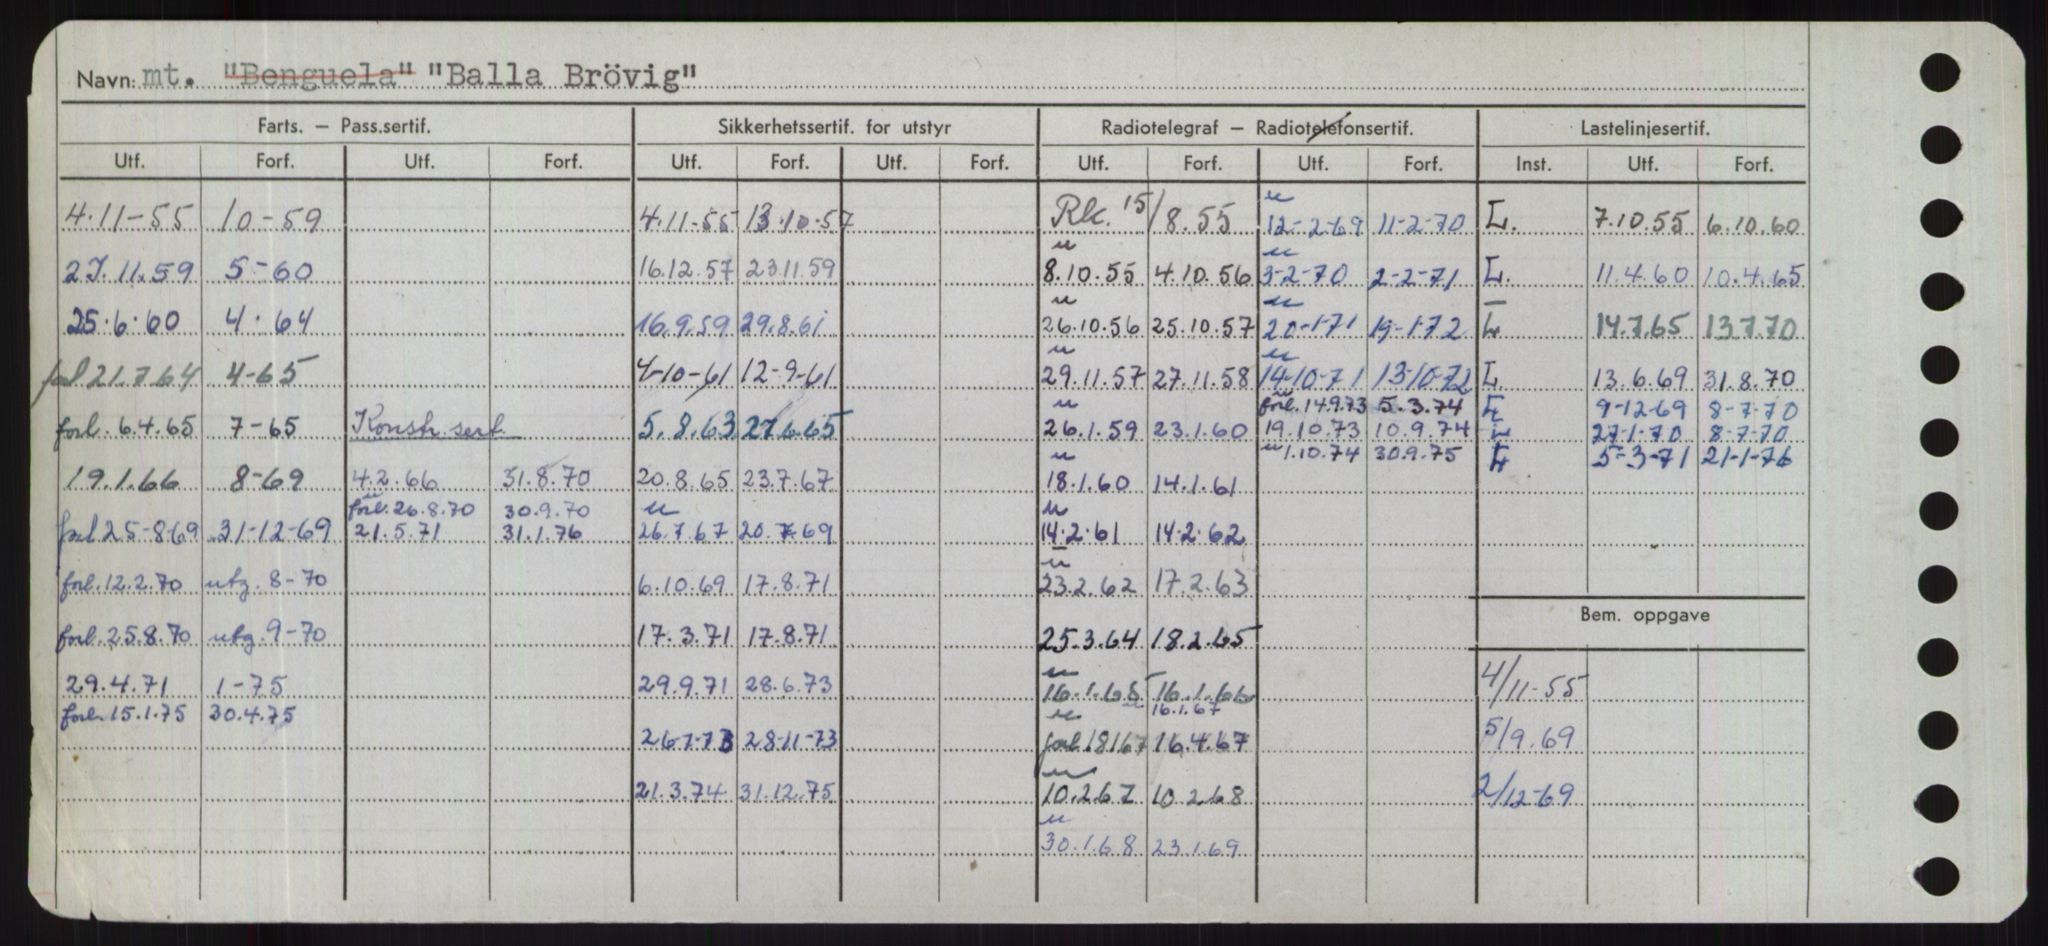 Navn: mt. "Benguela" "Balla Brövig"
Farts. – Pass.sertif. Sikkerhetssertif. for utstyr Radiotelegraf – Radiotelefonsertif. Lastelinjesertif.
Utf. Forf. Utf. Forf. Utf. Forf. Utf. Forf. Utf. Forf. Utf. Forf. Inst. Utf. Forf.
4.11-55 10-59 4.11-55 13.10.57 Rk. 15/8.55 12-2-69 11-2-70 L. 7.10.55 6.10.60
27.11.59 5-60 16.12.57 23.11.59 8.10.55 4.10.56 3-2-70 2-2-71 L. 11.4.60 10.4.65
25.6.60 4.64 16.9.59 29.8.61 26.10.56 25.10.57 20-1-71 19-1-72 L 14.7.65 13.7.70
forl 21.7.64 4-65 4-10-61 12-9-61 29.11.57 27.11.58 14-10-71 13-10-72 L. 13.6.69 31.8.70
forl. 14.9.73 5.3.74 L 9-12-69 8-7-70
forl. 6.4.65 7-65 Konstr. sert. 5.8.63 27.6.65 26.1.59 23.1.60 19.10.73 10.9.74 L 27-1-70 8-7-70
1.10.74 30.9.75 L 5-3-71 21-1-76
19.1.66 8-69 4.2.66 31.8.70 20.8.65 23.7.67 18.1.60 14.1.61
forl. 26.8.70 30.9.70
forl 25-8-69 31-12-69 21.5.71 31.1.76 26.7.67 20.7.69 14.2.61 14.2.62
forl. 12.2.70 utg. 8-70 6.10.69 17.8.71 23.2.62 17.2.63
Bem. oppgave
forl. 25.8.70 utg. 9-70 17.3.71 17.8.71 25.3.64 18.2.65
29.4.71 1-75 29.9.71 28.6.73 16.1.65 16.1.66 4/11-55
forl. 15.1.75 30.4.75 16.1.67
26-7-73 28-11-73 forl. 18167 16.4.67 5/9.69
21.3.74 31.12.75 10.2.67 10.2.68 2/12-69
30.1.68 23.1.69